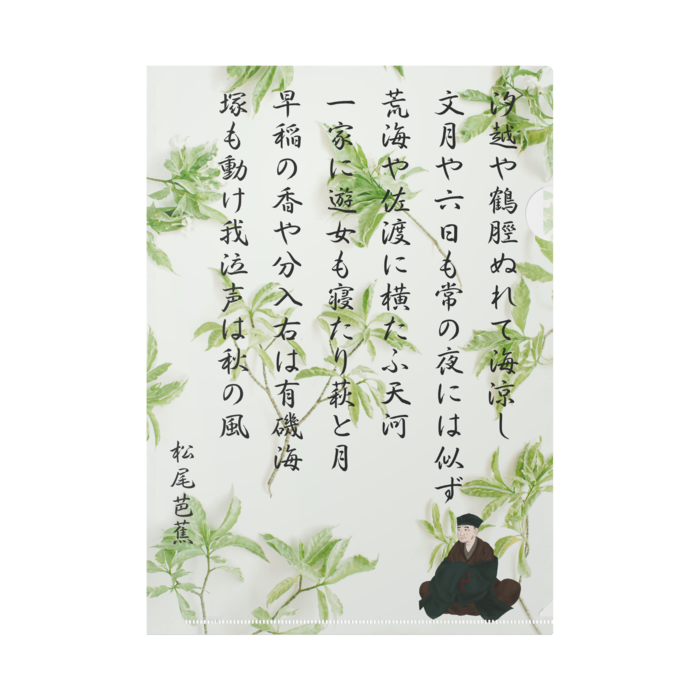 汐越や鶴脛ぬれて海涼し
文月や六日も常の夜には似ず
荒海や佐渡に横たふ天河
一家に遊女も寝たり萩と月
早稲の香や分入右は有磯海
塚も動け我泣声は秋の風
松尾芭蕉